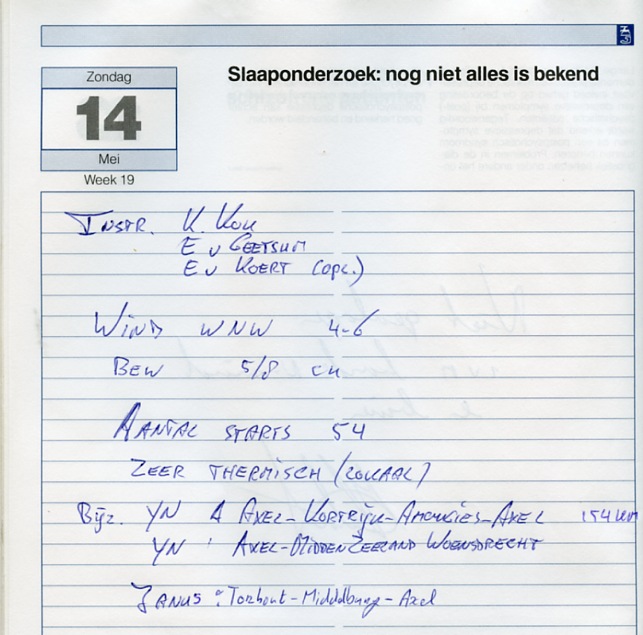 Slaaponderzoek: nog niet alles is bekend
Zondag
14
Mei
Week 19
INSTR. K. KOK
E v GEETSUM
E v KOERT (OPL.)
WIND WNW 4-6
BEW 5/8 CU
AANTAL STARTS 54
ZEER THERMISCH (LOKAAL)
Bijz. YN A AXEL-KORTRIJK-AMOUGIES-AXEL 154 KM
YN ' AXEL-MIDDENZEELAND WOENSDRECHT
JANUS : Torhout-Middelburg-Axel